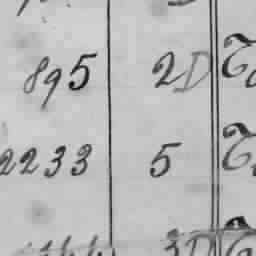 895 2D
2233 5
3D